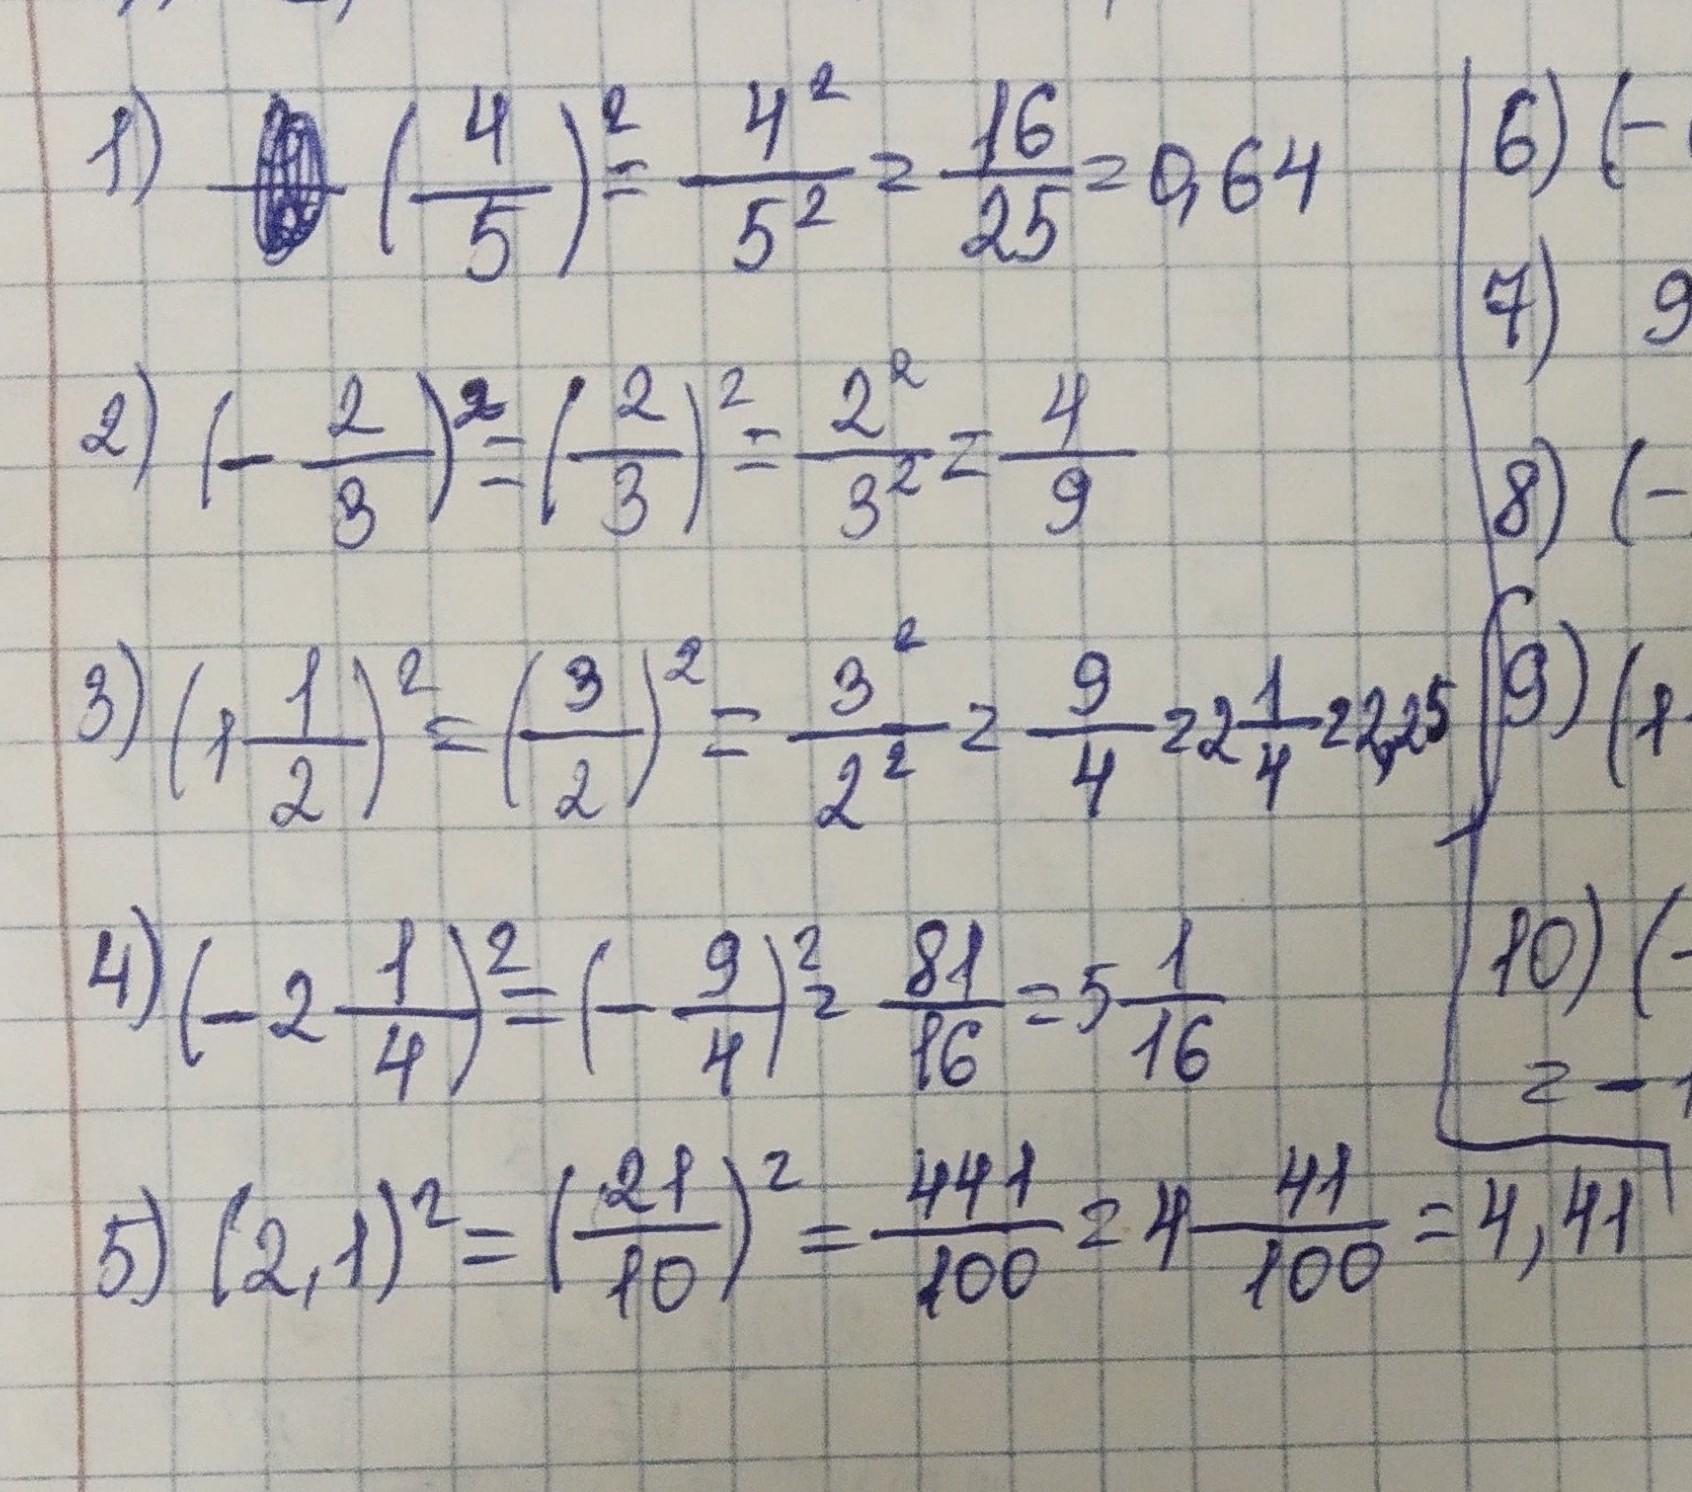 1) (4/5)² = 4²/5² = 16/25 = 0,64
2) (- 2/3)² = (2/3)² = 2²/3² = 4/9
3) (1 1/2)² = (3/2)² = 3²/2² = 9/4 = 2 1/4 = 2,25
4) (- 2 1/4)² = (- 9/4)² = 81/16 = 5 1/16
5) (2,1)² = (21/10)² = 441/100 = 4 41/100 = 4,41
6) (-
7) 9
8) (-
9) (1
10) (-
= - 1